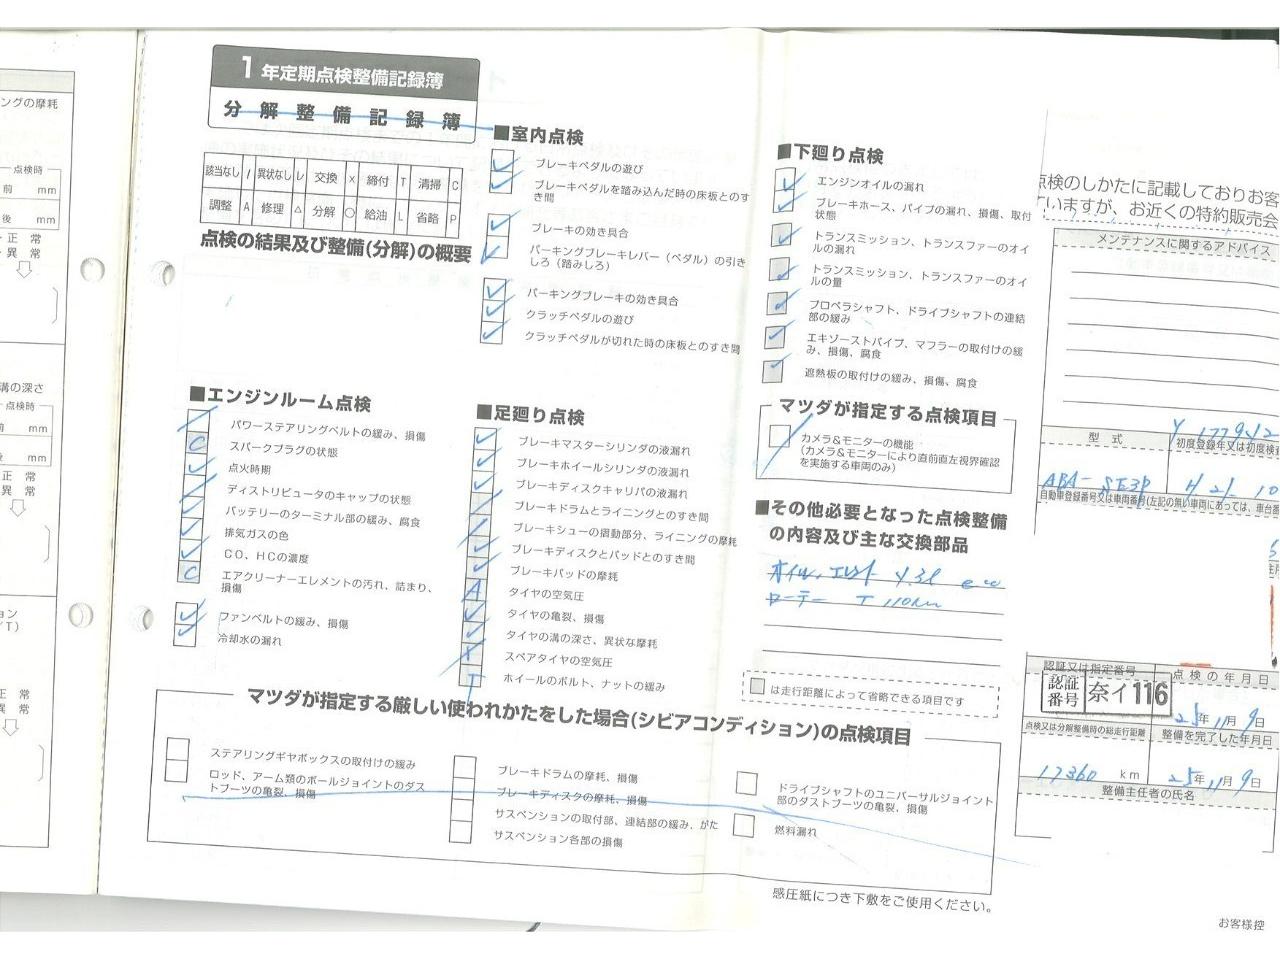 ングの摩耗
点検時
前 mm
後 mm
正 常
異 常
溝の深さ
点検時
前 mm
後 mm
正 常
異 常
ョン
/T)
正 常
異 常
1年定期点検整備記録簿
分解整備記録簿
該当なし / 異状なし レ 交換 × 締付 T 清掃 C
調整 A 修理 △ 分解 ○ 給油 L 省略 P
点検の結果及び整備(分解)の概要
■エンジンルーム点検
パワーステアリングベルトの緩み、損傷
C スパークプラグの状態
点火時期
ディストリビュータのキャップの状態
バッテリーのターミナル部の緩み、腐食
排気ガスの色
CO、HCの濃度
C エアクリーナーエレメントの汚れ、詰まり、
損傷
ファンベルトの緩み、損傷
冷却水の漏れ
■室内点検
ブレーキペダルの遊び
ブレーキペダルを踏み込んだ時の床板とのす
き間
ブレーキの効き具合
パーキングブレーキレバー(ペダル)の引き
しろ(踏みしろ)
パーキングブレーキの効き具合
クラッチペダルの遊び
クラッチペダルが切れた時の床板とのすき間
■足廻り点検
ブレーキマスターシリンダの液漏れ
ブレーキホイールシリンダの液漏れ
ブレーキディスクキャリパの液漏れ
ブレーキドラムとライニングとのすき間
ブレーキシューの摺動部分、ライニングの摩耗
ブレーキディスクとパッドとのすき間
ブレーキパッドの摩耗
A タイヤの空気圧
タイヤの亀裂、損傷
タイヤの溝の深さ、異状な摩耗
スペアタイヤの空気圧
T ホイールのボルト、ナットの緩み
■下廻り点検
エンジンオイルの漏れ
ブレーキホース、パイプの漏れ、損傷、取付
状態
トランスミッション、トランスファーのオイ
ルの漏れ
トランスミッション、トランスファーのオイ
ルの量
プロペラシャフト、ドライブシャフトの連結
部の緩み
エキゾーストパイプ、マフラーの取付けの緩
み、損傷、腐食
遮熱板の取付けの緩み、損傷、腐食
マツダが指定する点検項目
カメラ&モニターの機能
(カメラ&モニターにより直前直左視界確認
を実施する車両のみ)
■その他必要となった点検整備
の内容及び主な交換部品
オイル、エレメント
は走行距離によって省略できる項目です
マツダが指定する厳しい使われかたをした場合(シビアコンディション)の点検項目
ステアリングギヤボックスの取付けの緩み
ロッド、アーム類のボールジョイントのダス
トブーツの亀裂、損傷
ブレーキドラムの摩耗、損傷
ブレーキディスクの摩耗、損傷
サスペンションの取付部、連結部の緩み、がた
サスペンション各部の損傷
ドライブシャフトのユニバーサルジョイント
部のダストブーツの亀裂、損傷
燃料漏れ
感圧紙につき下敷をご使用ください。
点検のしかたに記載しておりお客
ていますが、お近くの特約販売会
メンテナンスに関するアドバイス
型 式
初度登録年又は初度検査
ABA-SE3P H 21 10
自動車登録番号又は車両番号(左記の無い車両にあっては、車台番
認証又は指定番号
点検の年月日
認証番号 奈イ116
25年11月9日
点検又は分解整備時の総走行距離
整備を完了した年月日
17360 km
25年11月9日
整備主任者の氏名
お客様控